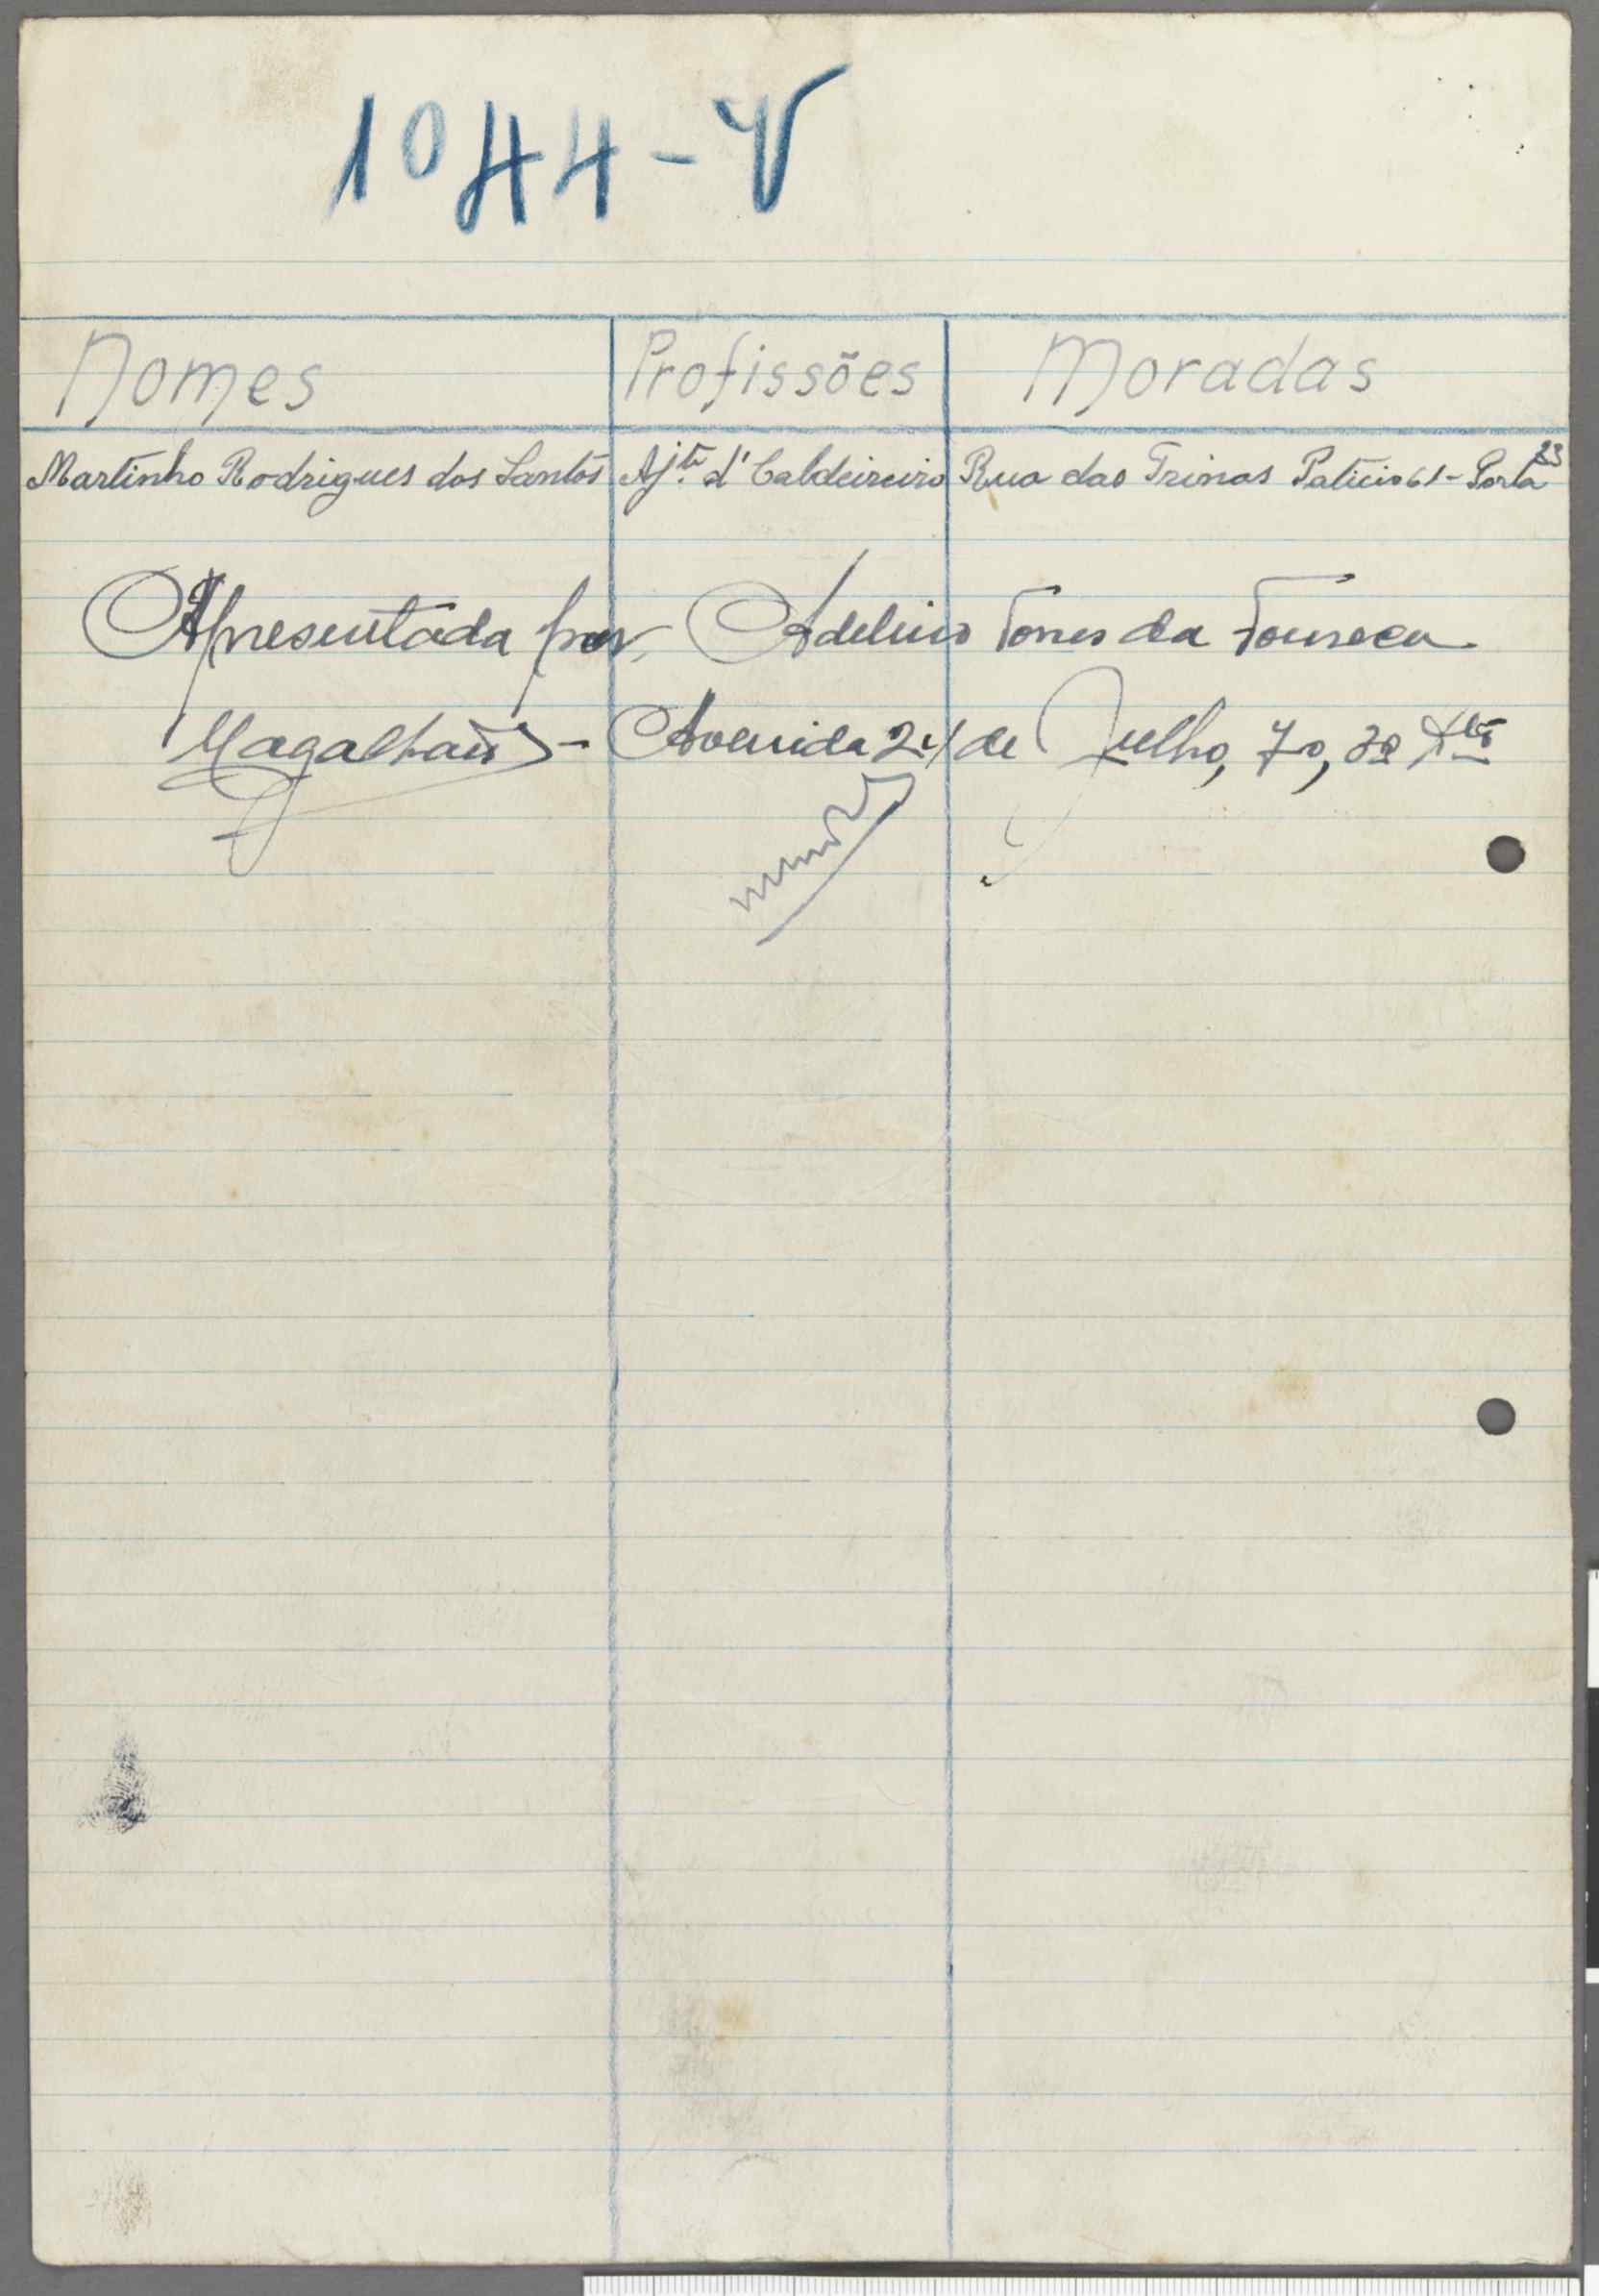 1044-V
Nomes Profissões Moradas
Martinho Rodrigues dos Santos Ajte. d'Caldeireiro Rua das Trinas Patiio 61-Porta 23
Apresentada por Adelino Torres da Fonseca
Magalhães - Avenida 24 de Julho, 70, 3º